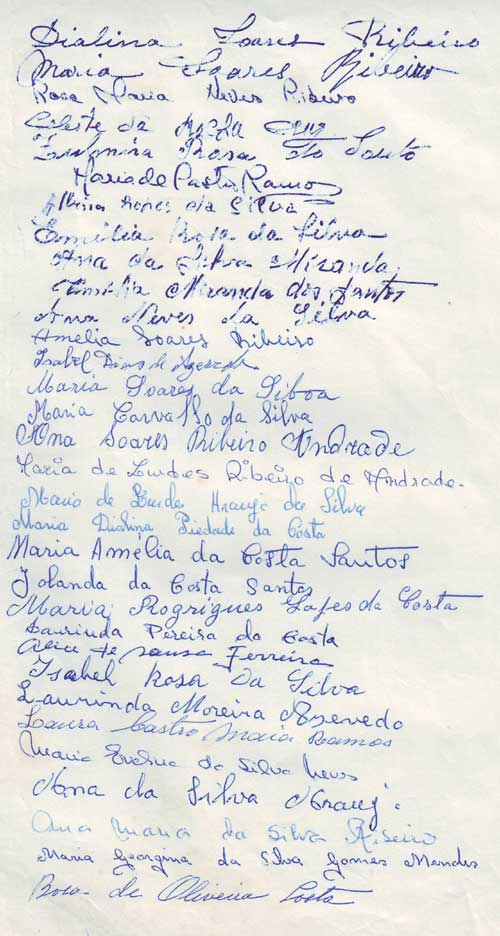 Dialina Soares Ribeiro
Maria Soares Ribeiro
Rosa Maria Neves Ribeiro
Celeste da Rocha Cruz
Zulmira Rosa do Couto
Maria de Castro Ramos
Albina Lopes da Silva
Emilia Rosa da Silva
Ana da Silva Miranda
Emilia Miranda dos Santos
Ana Neves da Silva
Amelia Soares Ribeiro
Isabel Dias de Azevedo
Maria Soares da Silva
Maria Carvalho da Silva
Ana Soares Ribeiro Andrade
Maria de Lurdes Ribeiro de Andrade.
Maria de Lurdes Araujo da Silva
Maria Dialina Piedade da Costa
Maria Amélia da Costa Santos
Jolanda da Costa Santos
Maria Rogrigues Lopes da Costa
Laurinda Pereira da Costa
Alice de Sousa Ferreira
Isabel Rosa Da Silva
Laurinda Moreira Azevedo
Laura Castro Maia Ramos
Maria Evelina da Silva Neves
Ana da Silva Arauj.
Ana Maria da Silva Ribeiro
Maria Georgina da Silva Gomes Mendes
Rosa de Oliveira Costa